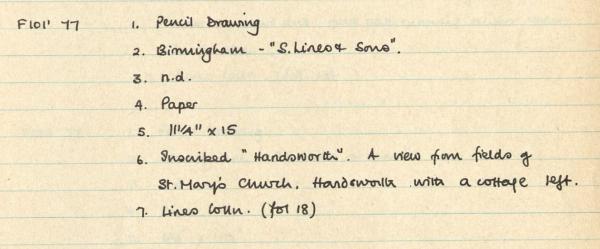 F101' 77 1. Pencil Drawing
2. Birmingham - "S. Lines & Sons".
3. n.d.
4. Paper
5. 11 1/4" x 15
6. Inscribed "Handsworth". A view from fields of
St. Mary's Church, Handsworth with a cottage left.
7. Lines Colln. (fol 18)